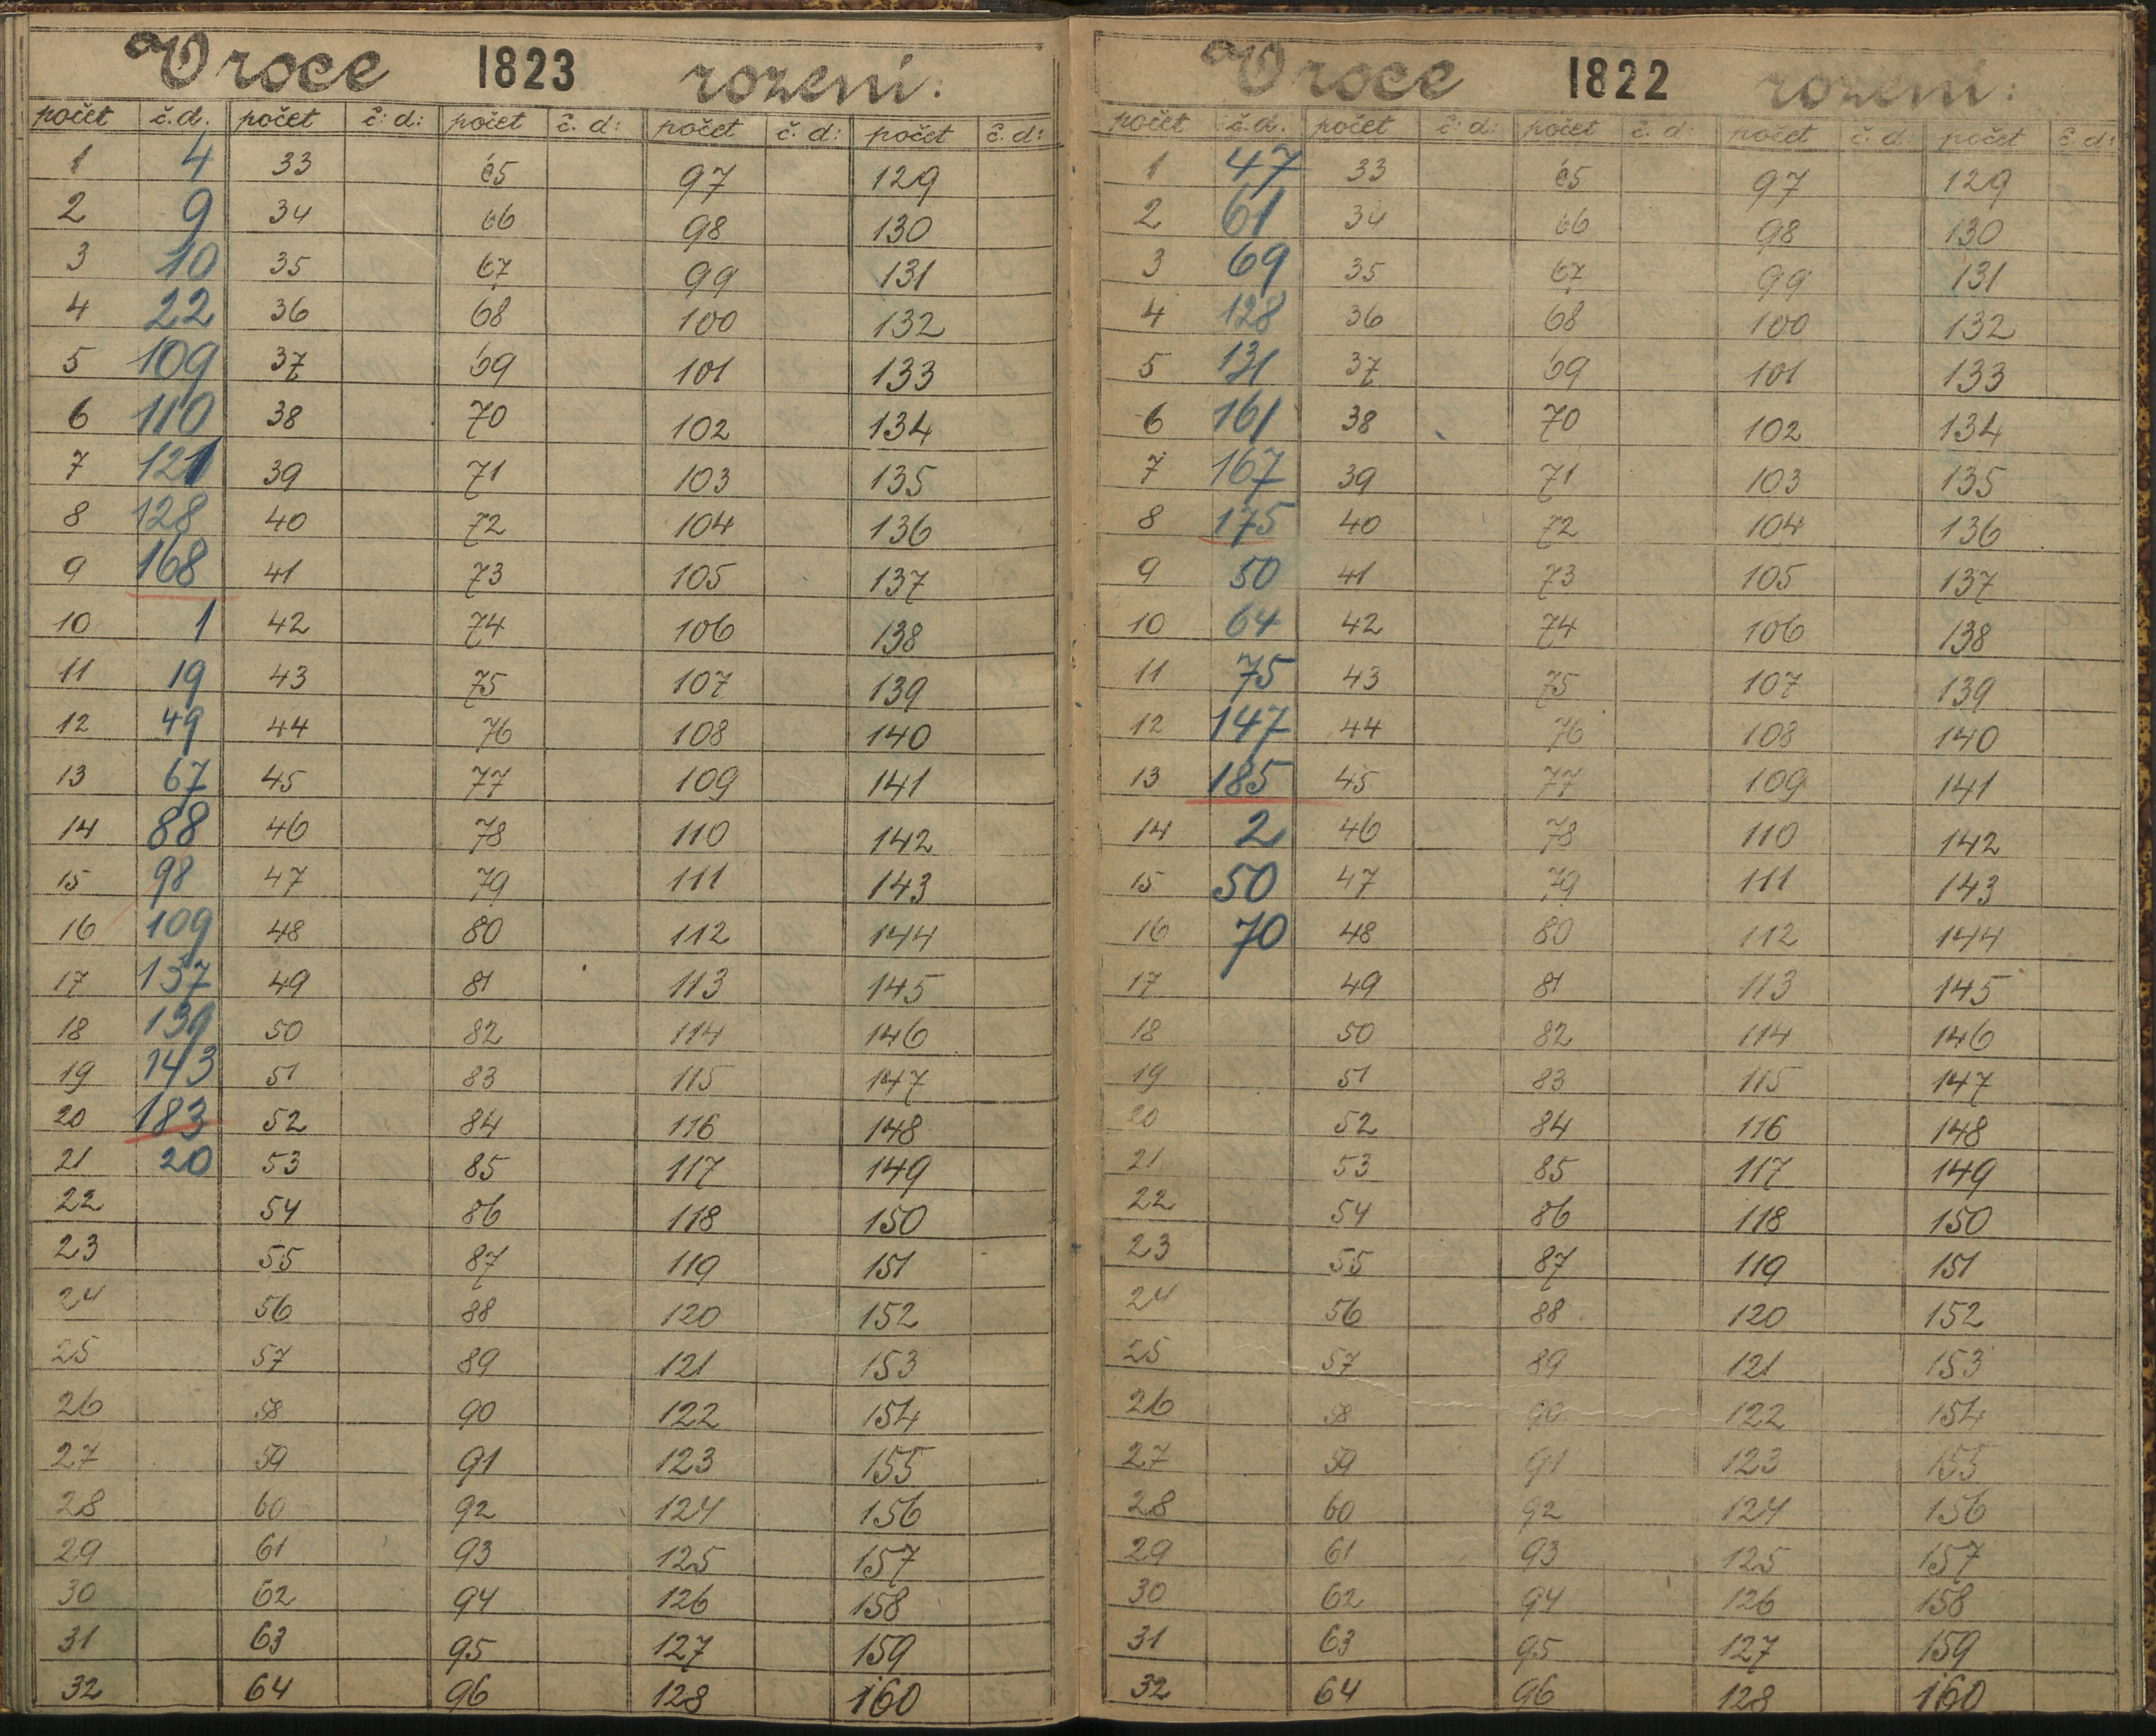 V roce 1823 rození:
počet č.d. počet č: d: počet č. d: počet č. d: počet č. d:
1 4 33 65 97 129
2 9 34 66 98 130
3 10 35 67 99 131
4 22 36 68 100 132
5 109 37 69 101 133
6 110 38 70 102 134
7 121 39 71 103 135
8 128 40 72 104 136
9 168 41 73 105 137
10 1 42 74 106 138
11 19 43 75 107 139
12 49 44 76 108 140
13 67 45 77 109 141
14 88 46 78 110 142
15 98 47 79 111 143
16 109 48 80 112 144
17 137 49 81 113 145
18 139 50 82 114 146
19 143 51 83 115 147
20 183 52 84 116 148
21 20 53 85 117 149
22 54 86 118 150
23 55 87 119 151
24 56 88 120 152
25 57 89 121 153
26 58 90 122 154
27 59 91 123 155
28 60 92 124 156
29 61 93 125 157
30 62 94 126 158
31 63 95 127 159
32 64 96 128 160
V roce 1822 rození:
počet č.d. počet č: d: počet č. d: počet č. d: počet č. d:
1 47 33 65 97 129
2 61 34 66 98 130
3 69 35 67 99 131
4 128 36 68 100 132
5 131 37 69 101 133
6 161 38 70 102 134
7 167 39 71 103 135
8 175 40 72 104 136
9 50 41 73 105 137
10 64 42 74 106 138
11 75 43 75 107 139
12 147 44 76 108 140
13 185 45 77 109 141
14 2 46 78 110 142
15 50 47 79 111 143
16 70 48 80 112 144
17 49 81 113 145
18 50 82 114 146
19 51 83 115 147
20 52 84 116 148
21 53 85 117 149
22 54 86 118 150
23 55 87 119 151
24 56 88 120 152
25 57 89 121 153
26 58 90 122 154
27 59 91 123 155
28 60 92 124 156
29 61 93 125 157
30 62 94 126 158
31 63 95 127 159
32 64 96 128 160